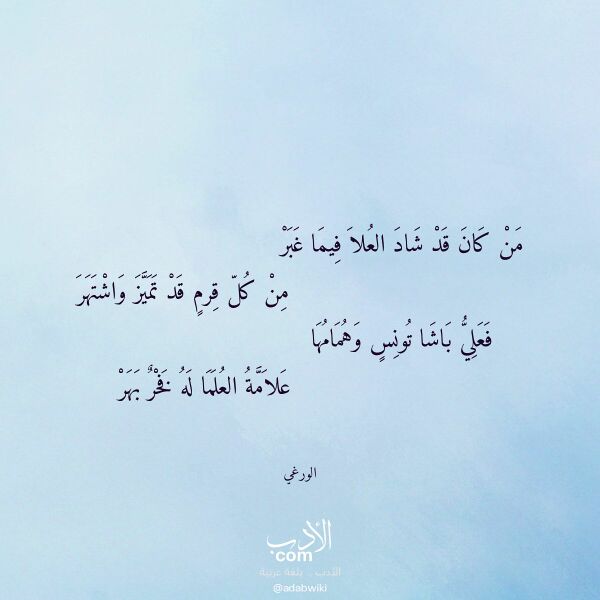 مَنْ كَانَ قَدْ شَادَ العُلاَ فِيمَا غَبَرْ
مِنْ كُلّ قِرمٍ قَدْ تَمَيَّزَ وَاشْتَهَرَ
فَعَلِيُّ بَاشَا تُونِسٍ وَهُمَامُهَا
عَلاَمَّةُ العُلَمَا لَهُ فَخْرٌ بَهَرْ
الورغي
الأدب
com
الأدب .. بلغة عربية
@adabwiki